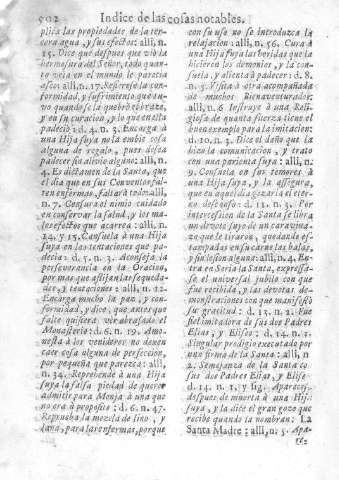 902 Indice de las cosas notables.
plica las propiedades de la ter-
cera agua, y sus efectos: alli, n.
15. Dice que despues que viò la
hermosura del Señor, todo quan-
to veia en el mundo le parecia
asco: alli, n. 17. Refierese la con-
formidad, y sufrimiento que tu-
vo quando se la quebrò el brazo,
y en su curacion, y lo que en esta
padeciò: d. 4. n. 3. Encarga à
una Hija suya no la embie cosa
alguna de regalo, pues desea
padecer sin alivio alguno: alli, n.
4. Es dictamen de la Santa, que
el dia que en sus Conventos fal-
ten enfermos, faltarà todo: alli,
n. 7. Censura el nimio cuidado
en conservar la salud, y los ma-
los efectos que acarrea: alli, n.
14. y 15. Consuela à una Hija
suya en las tentaciones que pa-
decia: d. 5. n. 3. Aconseja la
perseverancia en la Oracion,
por mas que aflijan las sequeda-
des, y tentaciones: alli, n. 12.
Encarga mucho la paz, y con-
formidad, y dice, que antes que
falte quisiera vèr abrasado el
Monasterio: d. 6. n. 19. Amo-
nesta à los venideros no dexen
caer cosa alguna de perfeccion,
por pequeña que parezca: alli,
n. 34. Reprehende à una Hija
suya la falsa piedad de querer
admitir para Monja à una que
no era à proposito: d. 6. n. 47.
Reprueba la mezcla de lino, y
lana, para las enfermas, porque
con su uso no se introduzca la
relajacion: alli, n. 56. Cura à
una Hija suya las heridas que la
hicieron los demonios, y la con-
suela, y alienta à padecer: d. 8.
n. 5. Visita à otra acompañada
de muchos Bienaventurados:
alli, n. 6 Instruye à una Reli-
giosa de quanta fuerza tiene el
buen exemplo para la imitacion:
d. 10. n. 3. Dice el daño que la
hizo la comunicacion, y trato
con una parienta suya: alli, n.
9. Consuela en sus temores à
una Hija suya, y la assegura,
que en aquel dia gozaria el eter-
no descanso: d. 12. n. 3. Por
intercession de la Santa se libra
un devoto suyo de un caravina-
zo que le tiraron, quedando es-
tampadas en su cara las balas,
y sin lesion alguna: alli, n. 4. En-
tra en Seria la Santa, expressa-
se el universal jubilo con que
fue recibida, y las devotas de-
mostraciones con que manifestò
su gratitud: d. 13. n. 2. Fue
fiel imitadora de sus dos Padres
Elias, y Eliseo: d. 14. n. 1.
Singular prodigio executado por
una firma de la Santa: alli, n.
2. Semejanza de la Santa con
sus dos Padres Elias, y Eliseo
d. 14. n. 1, y sig. Aparecese
despues de muerta à una Hija
suya, y la dice el gran gozo que
recibe quando la nombran: La
Santa Madre; alli, n. 5. Apa-